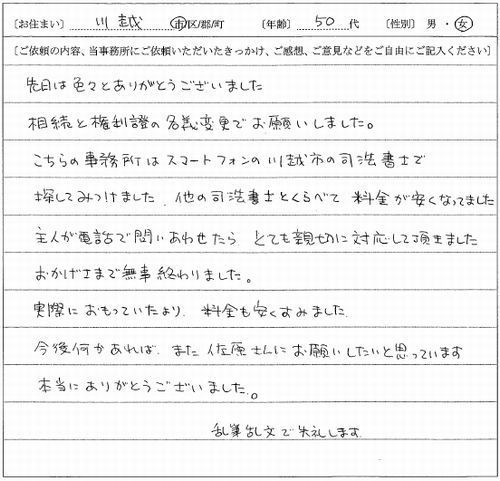 ［お住まい］ 川越 市/区/郡/町 ［年齢］ 50 代 ［性別］ 男・女
［ご依頼の内容、当事務所にご依頼いただいたきっかけ、ご感想、ご意見などをご自由にご記入ください］
先日は色々とありがとうございました
相続と権利證の名義変更でお願いしました。
こちらの事務所はスマートフォンの川越市の司法書士で
探してみつけました．他の司法書士とくらべて 料金が安くなってました
主人が電話で問いあわせたら とても親切に対応して頂きました
おかげさまで無事終わりました。
実際におもっていたより．料金も安くすみました．
今後何かあれば．また佐原さんにお願いしたいと思っています
本当にありがとうございました。
乱筆乱文で失礼します．